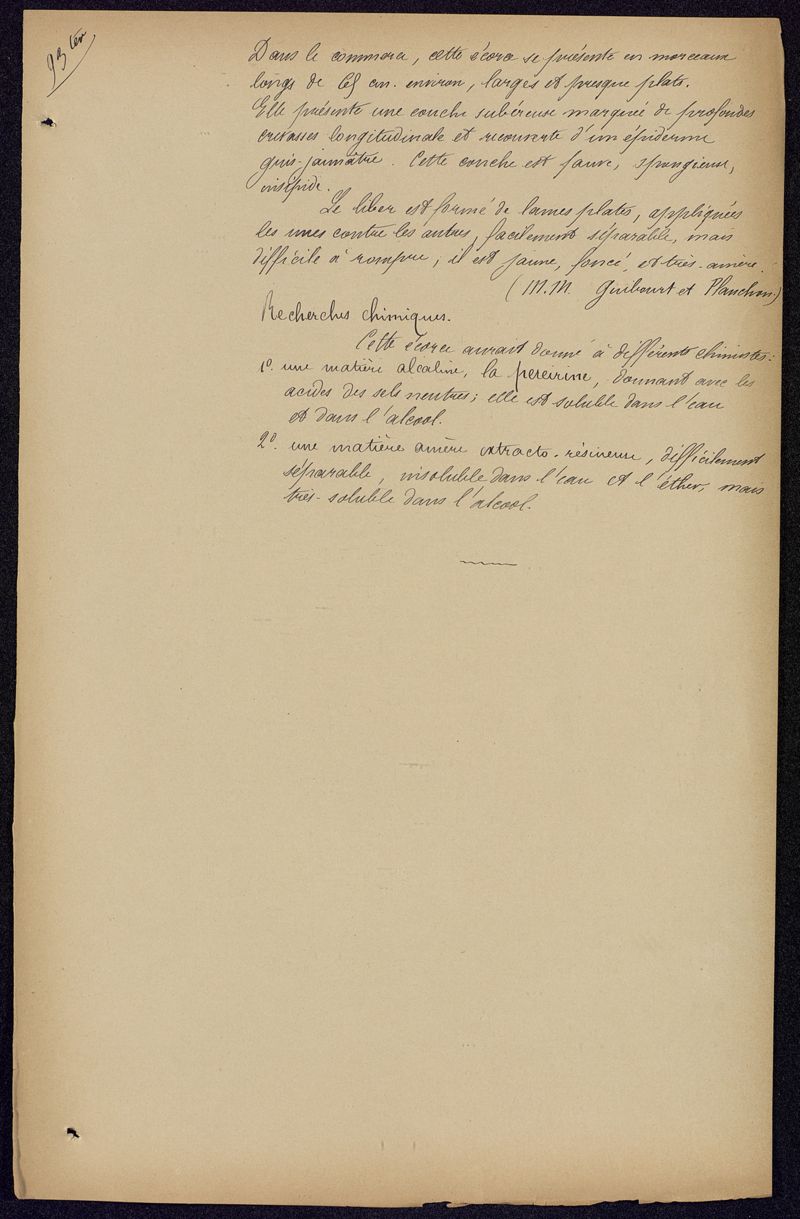 93 ter
Dans le commerce, cette écorce se présente en morceaux
longs de 65 cm. environ, larges et presque plats.
Elle présente une couche subéreuse marquée de profondes
crevasses longitudinale et recouverte d'un épiderme
gris-jaunâtre. Cette couche est fauve, spongieuse,
insipide.
Le liber est formé de lames plates, appliquées
les unes contre les autres, facilement séparable, mais
difficile à rompre; il est jaune, foncé, et très-amère.
(M.M. Guibourt et Planchon.)
Recherches chimiques.
Cette écorce aurait donné à différents chimistes:
1º. une matière alcaline, la pereirine, donnant avec les
acides des sels neutres; elle est soluble dans l'eau
et dans l'alcool.
2º. une matière amère extracto-résineuse, difficilement
séparable, insoluble dans l'eau et l'éther, mais
très-soluble dans l'alcool.